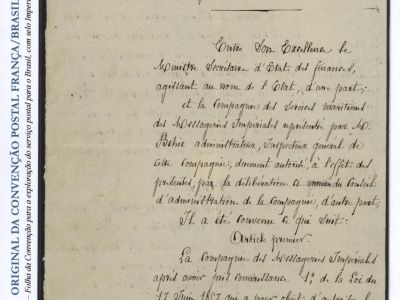 ORIGINAL DA CONVENÇÃO POSTAL FRANÇA/BRASIL
– Folha da Convenção para a exploração do serviço postal para o Brasil, com selo Imper
Entre Son Excellence le
Ministre Secrétaire d'Etat des finances,
agissant au nom de l'Etat, d'une part;
et la Compagnie des Services maritimes
des Messageries Impériales représentée par M.
Béhic administrateur, Inspecteur général de
cette Compagnie, dûment autorisé, à l'effet des
présentes, par la délibération du Conseil
d'administration de la Compagnie, d'autre part;
Il a été convenu ce qui suit:
Article premier.
La Compagnie des Messageries Impériales
après avoir pris connaissance 1º de la Loi du
17 Juin 1857 qui a pour objet d'autoriser